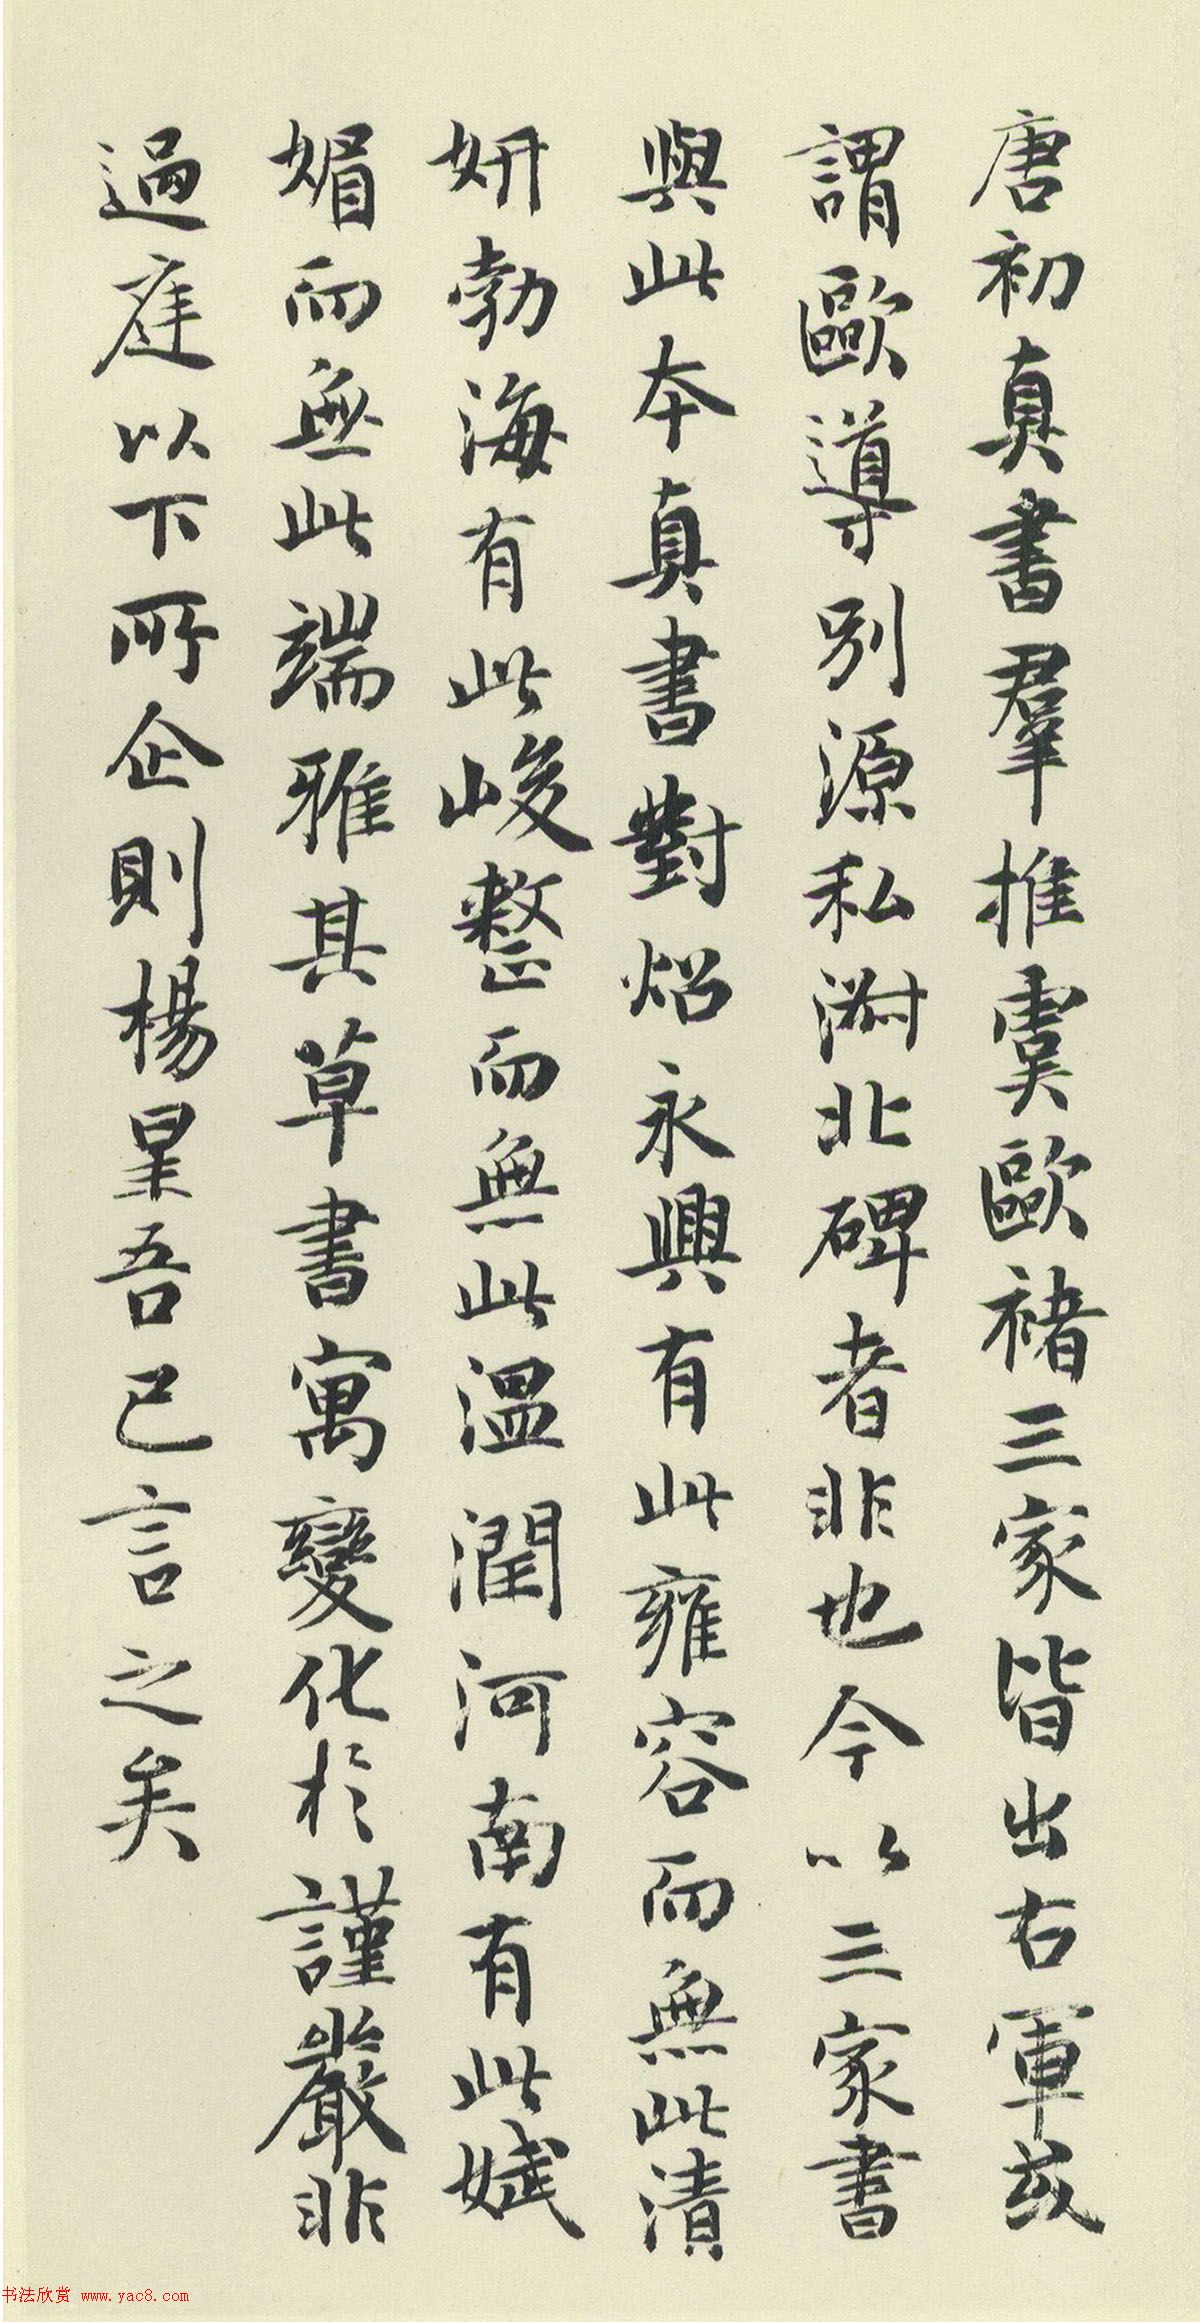 唐初真書羣推虞歐褚三家皆出右軍或
謂歐導別源私淑北碑者非也今以三家書
與此本真書對炤永興有此雍容而無此清
妍勃海有此峻整而無此溫潤河南有此娬
媚而無此端雅其草書寓變化於謹嚴非
過庭以下所企則楊星吾已言之矣
书法欣赏 www.yac8.com